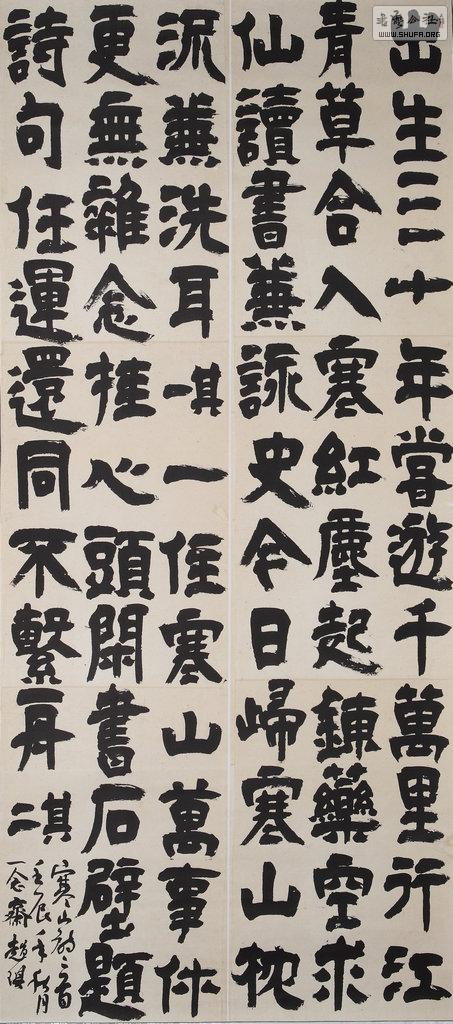 出生三十年嘗遊千萬里行江
青草合入寒紅塵起鍊藥空求
仙讀書兼詠史今日歸寒山枕
流兼洗耳其一一住寒山萬事休
更無雜念挂心頭閑書石壁題
詩句任運還同不繫舟其二
寒山詩二首
壬辰年秋月
一念齋趙
WWW.SHUFA.ORG